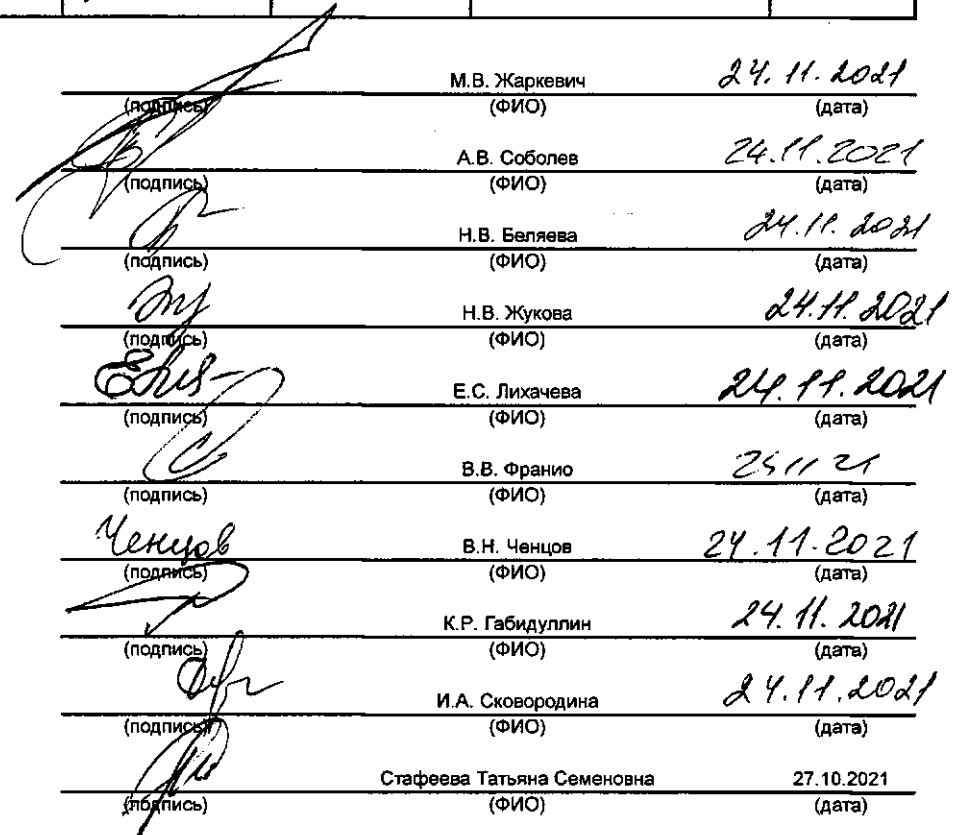 М.В. Жаркевич 24.11.2021
(подпись) (ФИО) (дата)
А.В. Соболев 24.11.2021
(подпись) (ФИО) (дата)
Н.В. Беляева 24.11.2021
(подпись) (ФИО) (дата)
Н.В. Жукова 24.11.2021
(подпись) (ФИО) (дата)
Е.С. Лихачева 24.11.2021
(подпись) (ФИО) (дата)
В.В. Франио
(подпись) (ФИО) (дата)
Ченцов В.Н. Ченцов 24.11.2021
(подпись) (ФИО) (дата)
К.Р. Габидуллин 24.11.2021
(подпись) (ФИО) (дата)
И.А. Сковородина 24.11.2021
(подпись) (ФИО) (дата)
Стафеева Татьяна Семеновна 27.10.2021
(подпись) (ФИО) (дата)